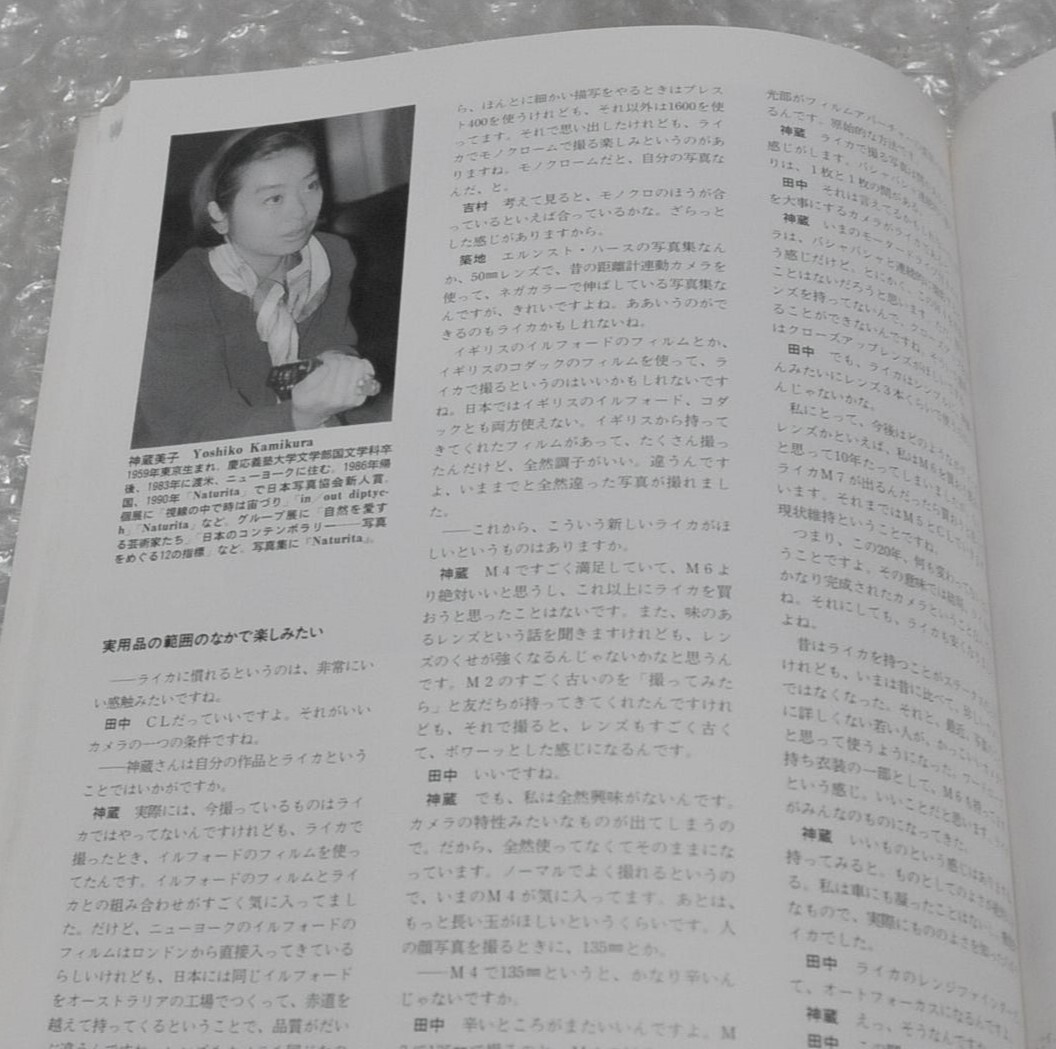 神蔵美子 Yoshiko Kamikura
1959年東京生まれ、慶応義塾大学文学部国文学科卒
後、1983年に渡米、ニューヨークに住む。1986年帰
国、1990年「Naturita」で日本写真協会新人賞。
個展に「視線の中で時は宙づり」「in／out diptyc-
h」「Naturita」など。グループ展に「自然を愛す
る芸術家たち」「日本のコンテンポラリー——写真
をめぐる12の指標」など。写真集に『Naturita』。
実用品の範囲のなかで楽しみたい
——ライカに慣れるというのは、非常にい
い感触みたいですね。
田中　ＣＬだっていいですよ。それがいい
カメラの一つの条件ですね。
——神蔵さんは自分の作品とライカという
ことではいかがですか。
神蔵　実際には、今撮っているものはライ
カではやってないんですけれども、ライカで
撮ったとき、イルフォードのフィルムを使っ
てたんです。イルフォードのフィルムとライ
カとの組み合わせがすごく気に入ってまし
た。だけど、ニューヨークのイルフォードの
フィルムはロンドンから直接入ってきている
らしいけれども、日本には同じイルフォード
をオーストラリアの工場でつくって、赤道を
越えて持ってくるということで、品質がだい
ら、ほんとに細かい描写をやるときはプレス
ト400を使うけれども、それ以外は1600を使
ってます。それで思い出したけれども、ライ
カでモノクロームで撮る楽しみというのがあ
りますね。モノクロームだと、自分の写真な
んだ、と。
吉村　考えて見ると、モノクロのほうが合
っているといえば合っているかな。ざらっと
した感じがありますから。
築地　エルンスト・ハースの写真集なん
か、50㎜レンズで、昔の距離計連動カメラを
使って、ネガカラーで伸ばしている写真集な
んですが、きれいですよね。ああいうのがで
きるのもライカかもしれないね。
イギリスのイルフォードのフィルムとか、
イギリスのコダックのフィルムを使って、ラ
イカで撮るというのはいいかもしれないです
ね。日本ではイギリスのイルフォード、コダ
ックとも両方使えない。イギリスから持って
きてくれたフィルムがあって、たくさん撮っ
たんだけど、全然調子がいい。違うんです
よ、いままでと全然違った写真が撮れまし
た。
——これから、こういう新しいライカがほ
しいというものはありますか。
神蔵　Ｍ４ですごく満足していて、Ｍ６よ
り絶対いいと思うし、これ以上にライカを買
おうと思ったことはないです。また、味のあ
るレンズという話を聞きますけれども、レン
ズのくせが強くなるんじゃないかなと思うん
です。Ｍ２のすごく古いのを「撮ってみた
ら」と友だちが持ってきてくれたんですけれ
ども、それで撮ると、レンズもすごく古く
て、ボワーッとした感じになるんです。
田中　いいですね。
神蔵　でも、私は全然興味がないんです。
カメラの特性みたいなものが出てしまうの
で。だから、全然使ってなくてそのままにな
っています。ノーマルでよく撮れるというの
で、いまのＭ４が気に入ってます。あとは、
もっと長い玉がほしいというくらいです。人
の顔写真を撮るときに、135㎜とか。
——Ｍ４で135㎜というと、かなり辛いん
じゃないですか。
田中　辛いところがまたいいんですよ。Ｍ
光郎がフィルムアパーチ
るんです。原始的な方法です。
神蔵　ライカで撮る写真は
感じがします。バシャバシャ
りは、１枚と１枚の間がある。
田中　それは言えてるかもしれ
を大事にするカメラがライカ
神蔵　いまのモータードライ
ラは、バシャバシャと連続的に
う感じだけど、とにかく、この
ことはないだろうと思います。
ンズを持ってないんで、クローズア
ることができないんですね。
はクローズアップレンズがほしい
田中　でも、ライカはシンプル
んみたいにレンズ３本くらいで使う
んじゃないかな。
私にとって、今後はどのような
レンズかといえば、私はＭ６を買お
と思って10年たってしまいました
ライカＭ７が出るんだったら買お
います。それまではＭ５とに
現状維持ということですね。
つまり、この20年、何も変わってない
うことですよ。その意味では結局、
かなり完成されたカメラということ
ね。それにしても、ライカも安くな
よね。
昔はライカを持つことがステータス
けれども、いまは昔に比べて、珍しい
ではなくなった。それと、最近、写真
に詳しくない若い人が、かっこいい
と思って使うようになった。ワード
持ち衣装の一部として、Ｍ６も持って
という感じ。いいことだと思います。
がみんなのものになってきた。
神蔵　いいものという感じはあり
持ってみると。ものとしてのよさが
る。私は車にも凝ったことはないし、
なもので、実際にもののよさを知った
イカでした。
田中　ライカのレンジファインダー
て、オートフォーカスになるんですよ
神蔵　えっ、そうなんですか
田中　この